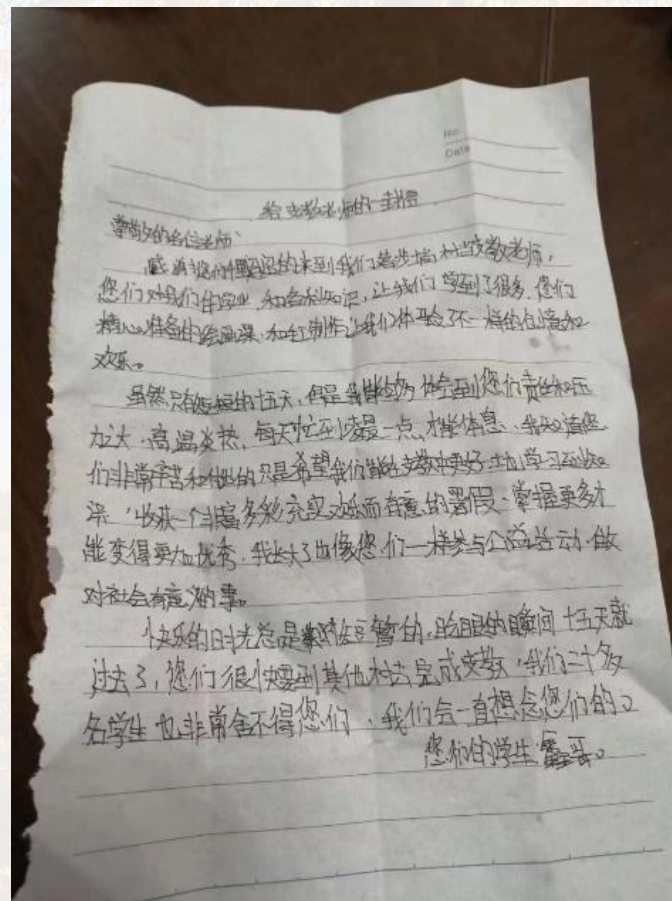 No.
Date
给支教老师的一封信
尊敬的各位老师：
感谢您们 来到我们 村当支教老师，
您们对我们的学业，和各科知识，让我们学到了很多，您们
精心准备的绘画课，和红制作让我们体验不一样的 和
欢乐。
虽然只有短短的十五天，但是我能够体会到您们责任和压
力大，高温炎热，每天忙至凌晨一点，才能休息，我知道您
们非常辛苦和 只是希望我们能在支教中更好 学习到知
识，收获一个丰富多彩充实欢乐而有意的暑假，掌握更多才
能变得更加优秀，我长大了也像您们一样参与公益活动，做
对社会有意义的事。
快乐的时光总是 短暂的，眨眼的瞬间十五天就
过去了，您们很快要到其他村去完成支教，我们三十多
名学生也非常舍不得您们，我们会一直想念您们的。
您们的学生